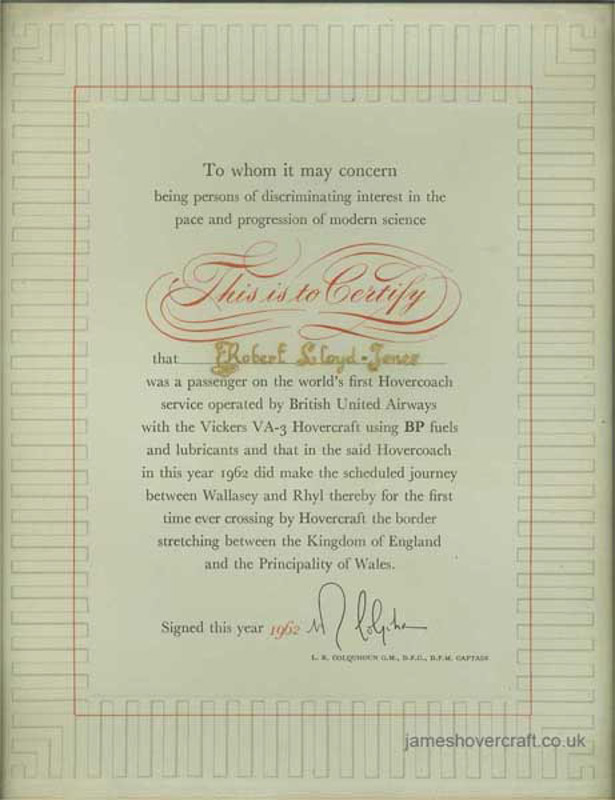 To whom it may concern
being persons of discriminating interest in the
pace and progression of modern science
This is to Certify
that Robert Lloyd-Jones
was a passenger on the world's first Hovercoach
service operated by British United Airways
with the Vickers VA-3 Hovercraft using BP fuels
and lubricants and that in the said Hovercoach
in this year 1962 did make the scheduled journey
between Wallasey and Rhyl thereby for the first
time ever crossing by Hovercraft the border
stretching between the Kingdom of England
and the Principality of Wales.
Signed this year 1962
L. R. COLQUHOUN G.M., D.F.C., D.F.M. CAPTAIN
jameshovercraft.co.uk